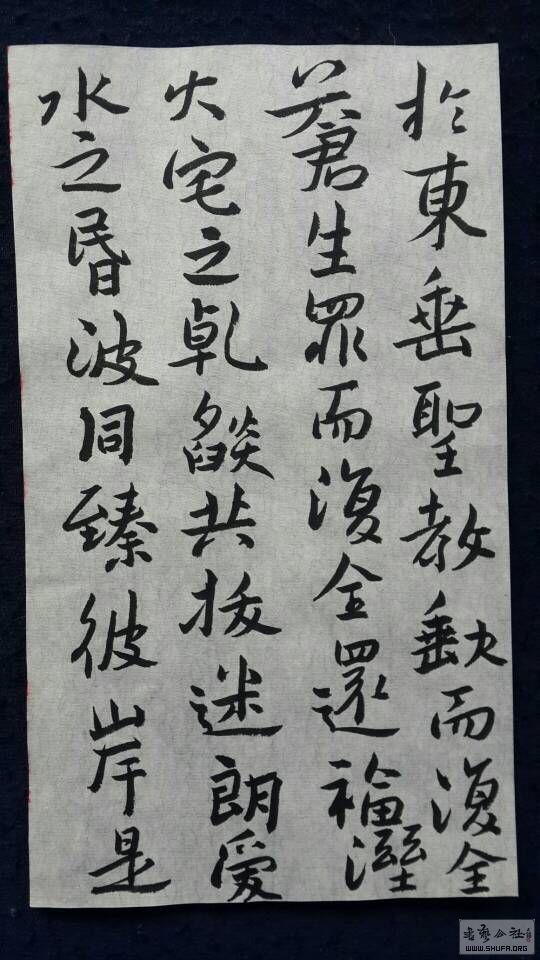 於東垂聖教缺而復全
蒼生罪而復全還福溼
火宅之乾燄共拔迷朗愛
水之昬波同臻彼岸是
書藝公社
WWW.SHUFA.ORG